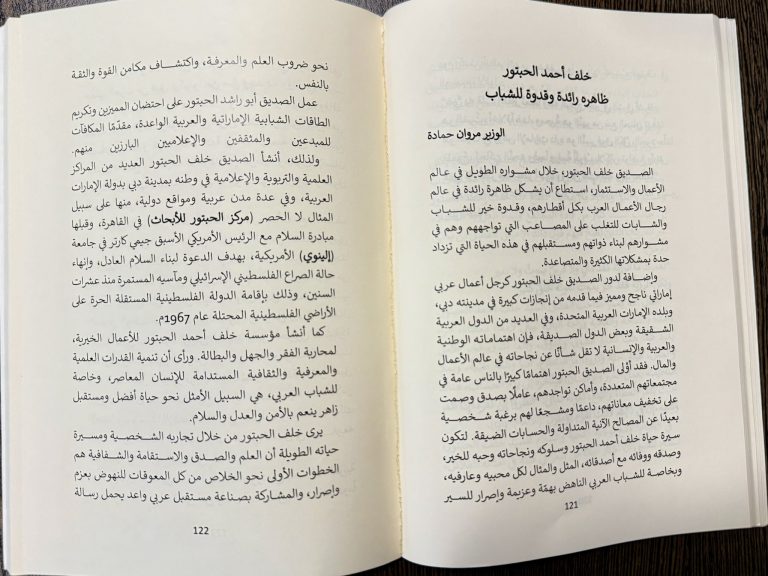 خلف أحمد الحبتور
ظاهره رائدة وقدوة للشباب
الوزير مروان حمادة
الصديق خلف الحبتور، خلال مشواره الطويل في عالم
الأعمال والاستثمار، استطاع أن يشكل ظاهرة رائدة في عالم
رجال الأعمال العرب بكل أقطارهم، وقدوة خير للشباب
والشابات للتغلب على المصاعب التي تواجههم وهم في
مشوارهم لبناء ذواتهم ومستقبلهم في هذه الحياة التي تزداد
حدة بمشكلاتها الكثيرة والمتصاعدة.
وإضافة لدور الصديق خلف الحبتور كرجل أعمال عربي
إماراتي ناجح ومميز فيما قدمه من إنجازات كبيرة في مدينته دبي،
وبلده الإمارات العربية المتحدة، وفي العديد من الدول العربية
الشقيقة وبعض الدول الصديقة، فإن اهتماماته الوطنية
والعربية والإنسانية لا تقل شأنًا عن نجاحاته في عالم الأعمال
والمال. فقد أولى الصديق الحبتور اهتمامًا كبيرًا بالناس عامة في
مجتمعاتهم المتعددة، وأماكن تواجدهم، عاملًا بصدق وصمت
على تخفيف معاناتهم، داعمًا ومشجعًا لهم برغبة شخصية
بعيدًا عن المصالح الآنية المتداولة والحسابات الضيقة. لتكون
سيرة حياة خلف أحمد الحبتور وسلوكه ونجاحاته وحبه للخير،
وصدقه ووفائه مع أصدقائه، المثل والمثال لكل محبيه وعارفيه،
وبخاصة للشباب العربي الناهض بهمّة وعزيمة وإصرار للسير
121
نحو ضروب العلم والمعرفة، واكتشاف مكامن القوة والثقة
بالنفس.
عمل الصديق أبو راشد الحبتور على احتضان المميزين وتكريم
الطاقات الشبابية الإماراتية والعربية الواعدة، مقدّمًا المكافآت
للمبدعين والمثقفين والإعلاميين البارزين منهم.
ولذلك، أنشأ الصديق خلف الحبتور العديد من المراكز
العلمية والتربوية والإعلامية في وطنه بمدينة دبي بدولة الإمارات
العربية، وفي عدة مدن عربية ومواقع دولية، منها على سبيل
المثال لا الحصر (مركز الحبتور للأبحاث) في القاهرة، وقبلها
مبادرة السلام مع الرئيس الأمريكي الأسبق جيمي كارتر في جامعة
(إلينوي) الأمريكية، بهدف الدعوة لبناء السلام العادل، وإنهاء
حالة الصراع الفلسطيني الإسرائيلي ومآسيه المستمرة منذ عشرات
السنين، وذلك بإقامة الدولة الفلسطينية المستقلة الحرة على
الأراضي الفلسطينية المحتلة عام 1967م.
كما أنشأ مؤسسة خلف أحمد الحبتور للأعمال الخيرية،
لمحاربة الفقر والجهل والبطالة. ورأى أن تنمية القدرات العلمية
والمعرفية والثقافية المستدامة للإنسان المعاصر، وخاصة
للشباب العربي، هي السبيل الأمثل نحو حياة أفضل ومستقبل
زاهر ينعم بالأمن والعدل والسلام.
يرى خلف الحبتور من خلال تجاربه الشخصية ومسيرة
حياته الطويلة أن العلم والصدق والاستقامة والشفافية هم
الخطوات الأولى نحو الخلاص من كل المعوقات للنهوض بعزم
وإصرار، والمشاركة بصناعة مستقبل عربي واعد يحمل رسالة
122